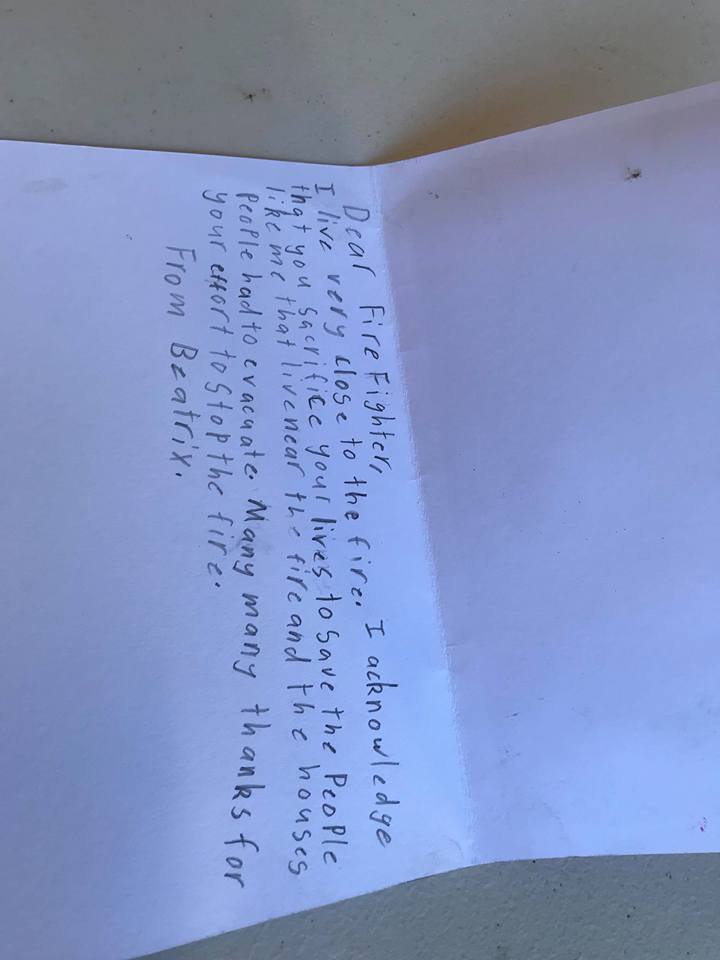 Dear FireFighter,
I live very close to the fire. I acknowledge
that you sacrifice your lives to save the People
like me that live near the fire and the houses
People had to evacuate. Many many thanks for
your effort to stop the fire.
From Beatrix.